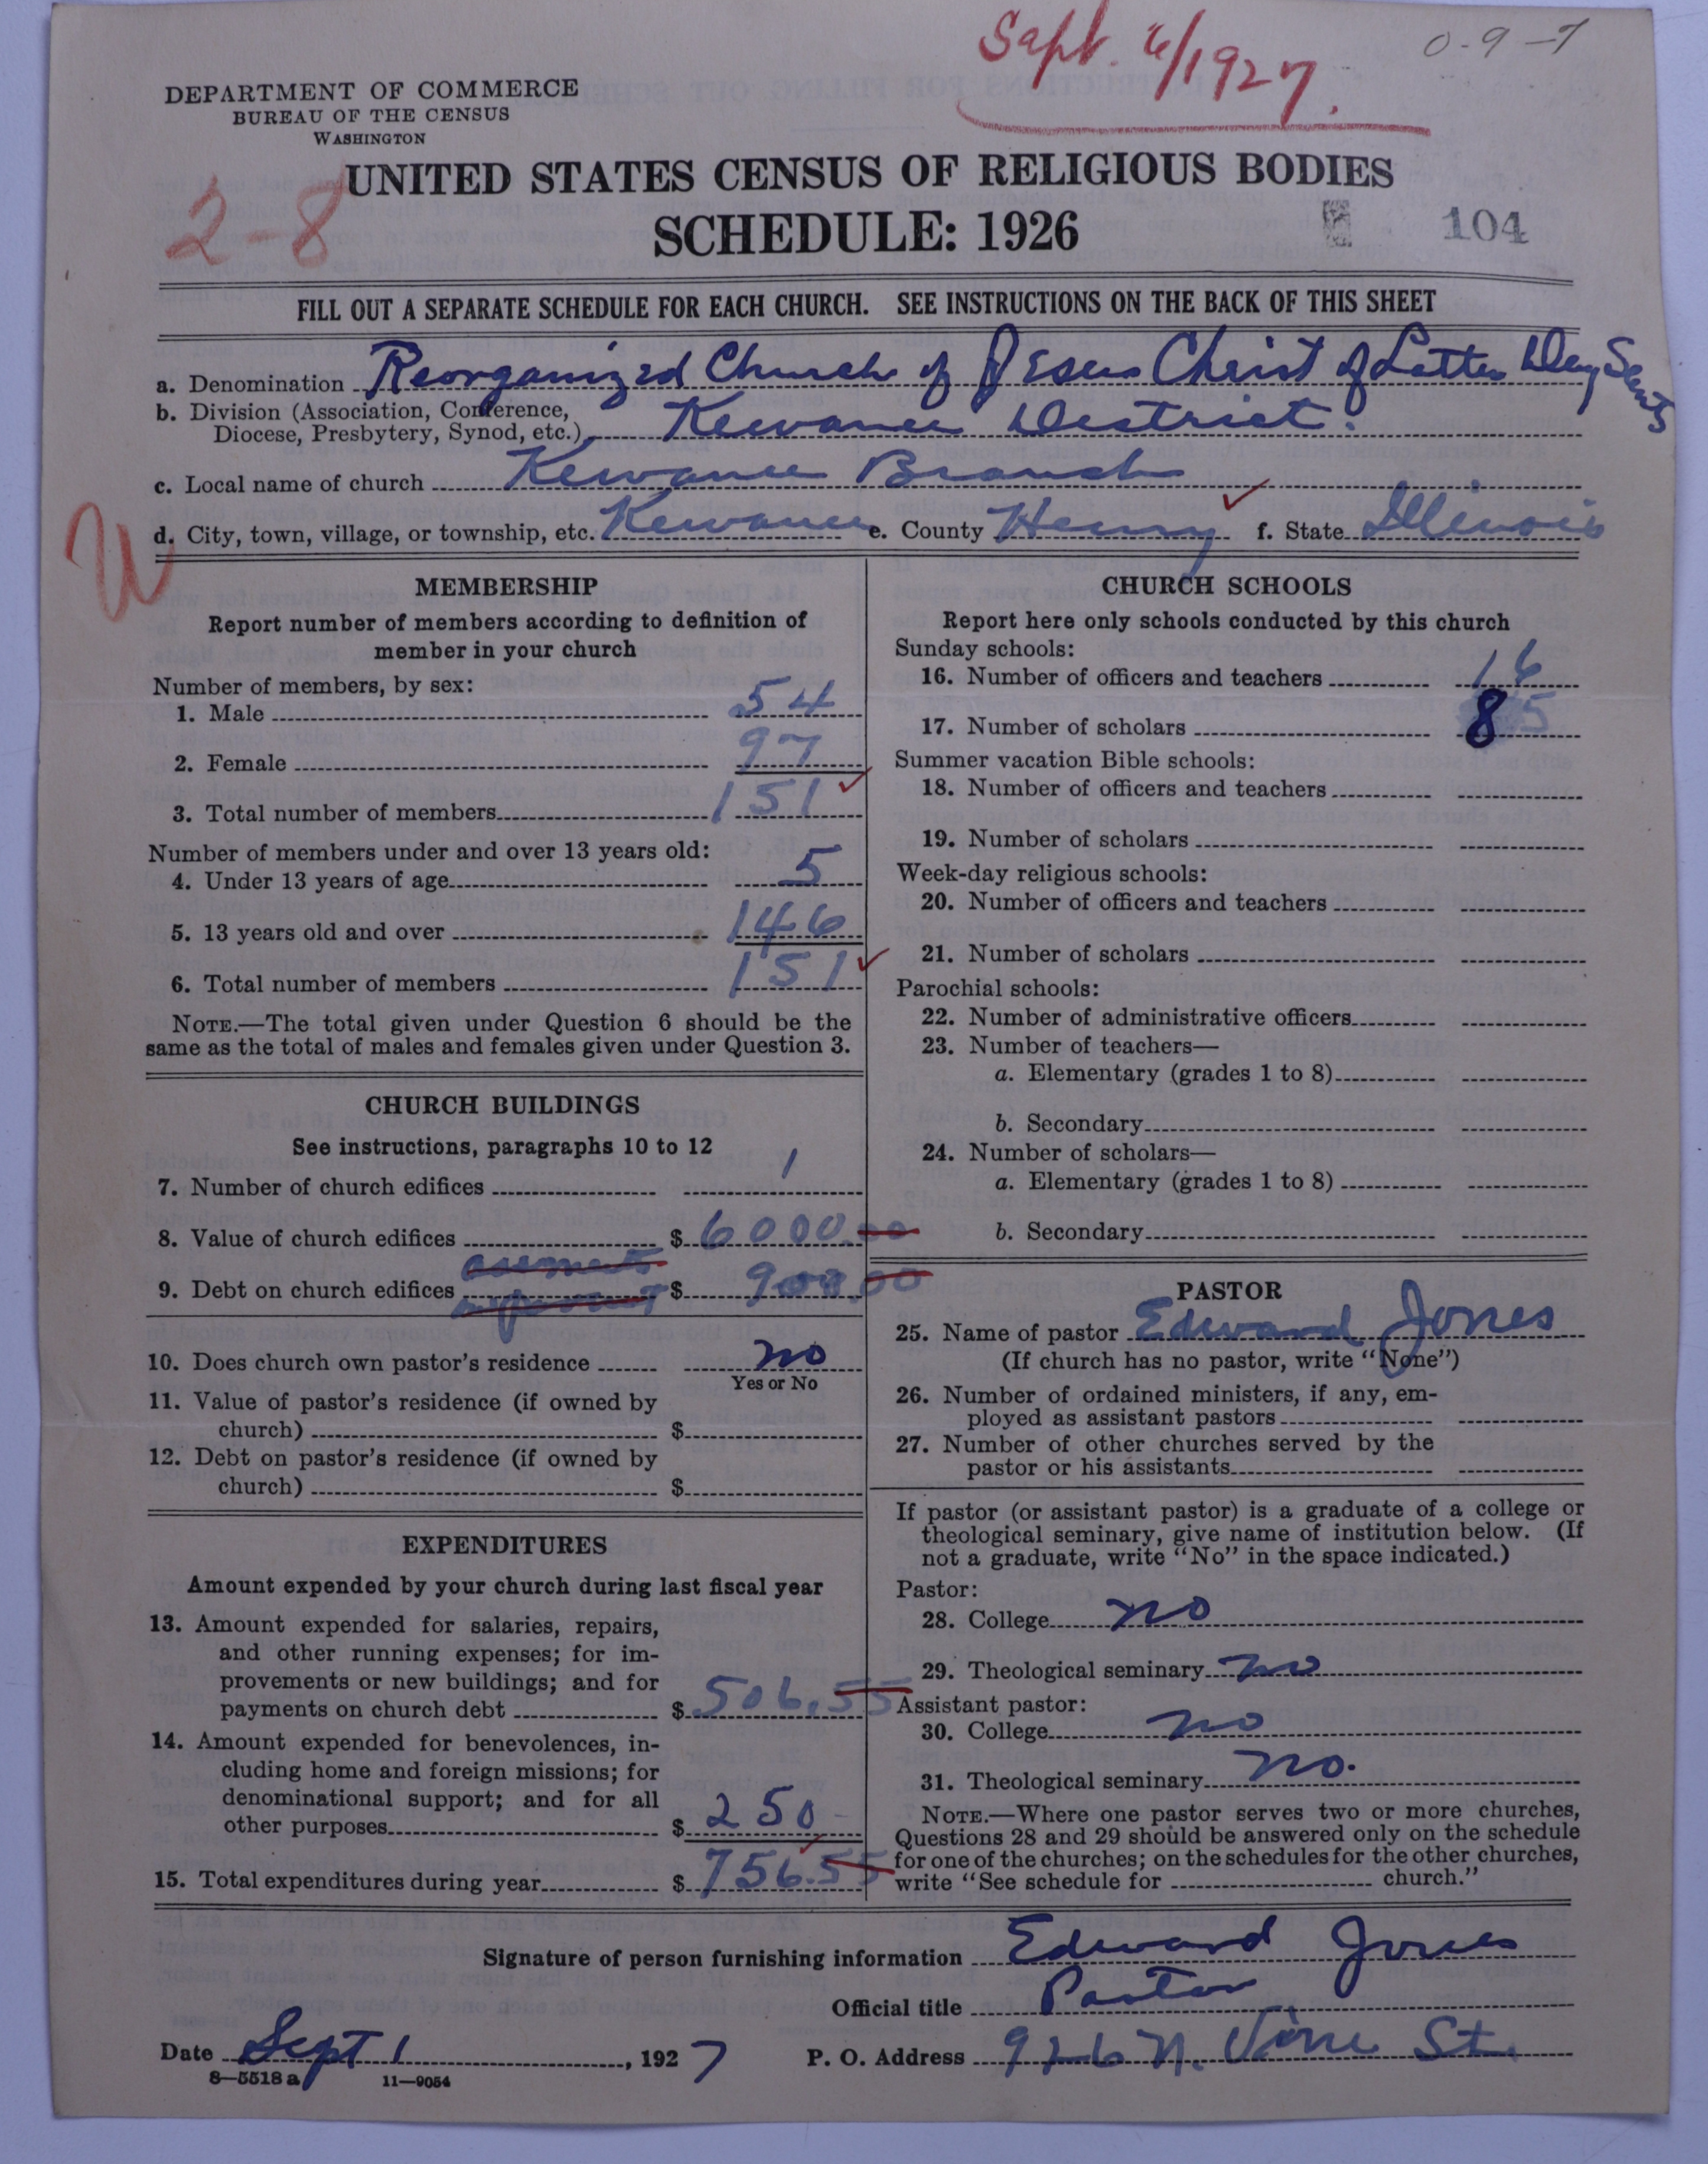 Sept. 6/1927.
0-9-7
DEPARTMENT OF COMMERCE
BUREAU OF THE CENSUS
WASHINGTON
UNITED STATES CENSUS OF RELIGIOUS BODIES
2-8
SCHEDULE: 1926
104
FILL OUT A SEPARATE SCHEDULE FOR EACH CHURCH. SEE INSTRUCTIONS ON THE BACK OF THIS SHEET
a. Denomination Reorganized Church of Jesus Christ of Latter Day Saints
b. Division (Association, Conference,
Diocese, Presbytery, Synod, etc.) Kewanee District.
c. Local name of church Kewanee Branch
d. City, town, village, or township, etc. Kewanee e. County Henry f. State Illinois
W
MEMBERSHIP
Report number of members according to definition of
member in your church
Number of members, by sex:
1. Male 54
2. Female 97
3. Total number of members 151
Number of members under and over 13 years old:
4. Under 13 years of age 5
5. 13 years old and over 146
6. Total number of members 151
NOTE.—The total given under Question 6 should be the
same as the total of males and females given under Question 3.
CHURCH BUILDINGS
See instructions, paragraphs 10 to 12
7. Number of church edifices 1
8. Value of church edifices $ 6000.00
9. Debt on church edifices $ 900.00
10. Does church own pastor's residence no
Yes or No
11. Value of pastor's residence (if owned by
church) $
12. Debt on pastor's residence (if owned by
church) $
EXPENDITURES
Amount expended by your church during last fiscal year
13. Amount expended for salaries, repairs,
and other running expenses; for im-
provements or new buildings; and for
payments on church debt $ 506.55
14. Amount expended for benevolences, in-
cluding home and foreign missions; for
denominational support; and for all
other purposes $ 250-
15. Total expenditures during year $ 756.55
CHURCH SCHOOLS
Report here only schools conducted by this church
Sunday schools:
16. Number of officers and teachers 16
17. Number of scholars 85
Summer vacation Bible schools:
18. Number of officers and teachers
19. Number of scholars
Week-day religious schools:
20. Number of officers and teachers
21. Number of scholars
Parochial schools:
22. Number of administrative officers
23. Number of teachers—
a. Elementary (grades 1 to 8)
b. Secondary
24. Number of scholars—
a. Elementary (grades 1 to 8)
b. Secondary
PASTOR
25. Name of pastor Edward Jones
(If church has no pastor, write "None")
26. Number of ordained ministers, if any, em-
ployed as assistant pastors
27. Number of other churches served by the
pastor or his assistants
If pastor (or assistant pastor) is a graduate of a college or
theological seminary, give name of institution below. (If
not a graduate, write "No" in the space indicated.)
Pastor:
28. College no
29. Theological seminary no
Assistant pastor:
30. College no
31. Theological seminary no.
NOTE.—Where one pastor serves two or more churches,
Questions 28 and 29 should be answered only on the schedule
for one of the churches; on the schedules for the other churches,
write "See schedule for church."
Signature of person furnishing information Edward Jones
Official title Pastor
Date Sept 1, 1927 P. O. Address 926 N. Vine St.
8—5518 a 11—9054